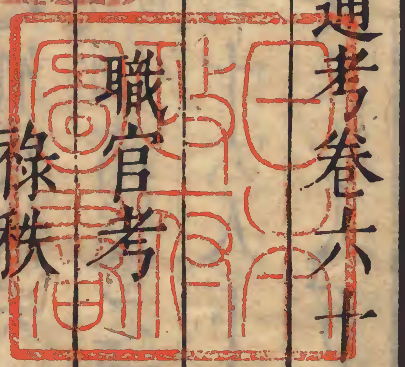 通考卷六十
職官考
祿秩